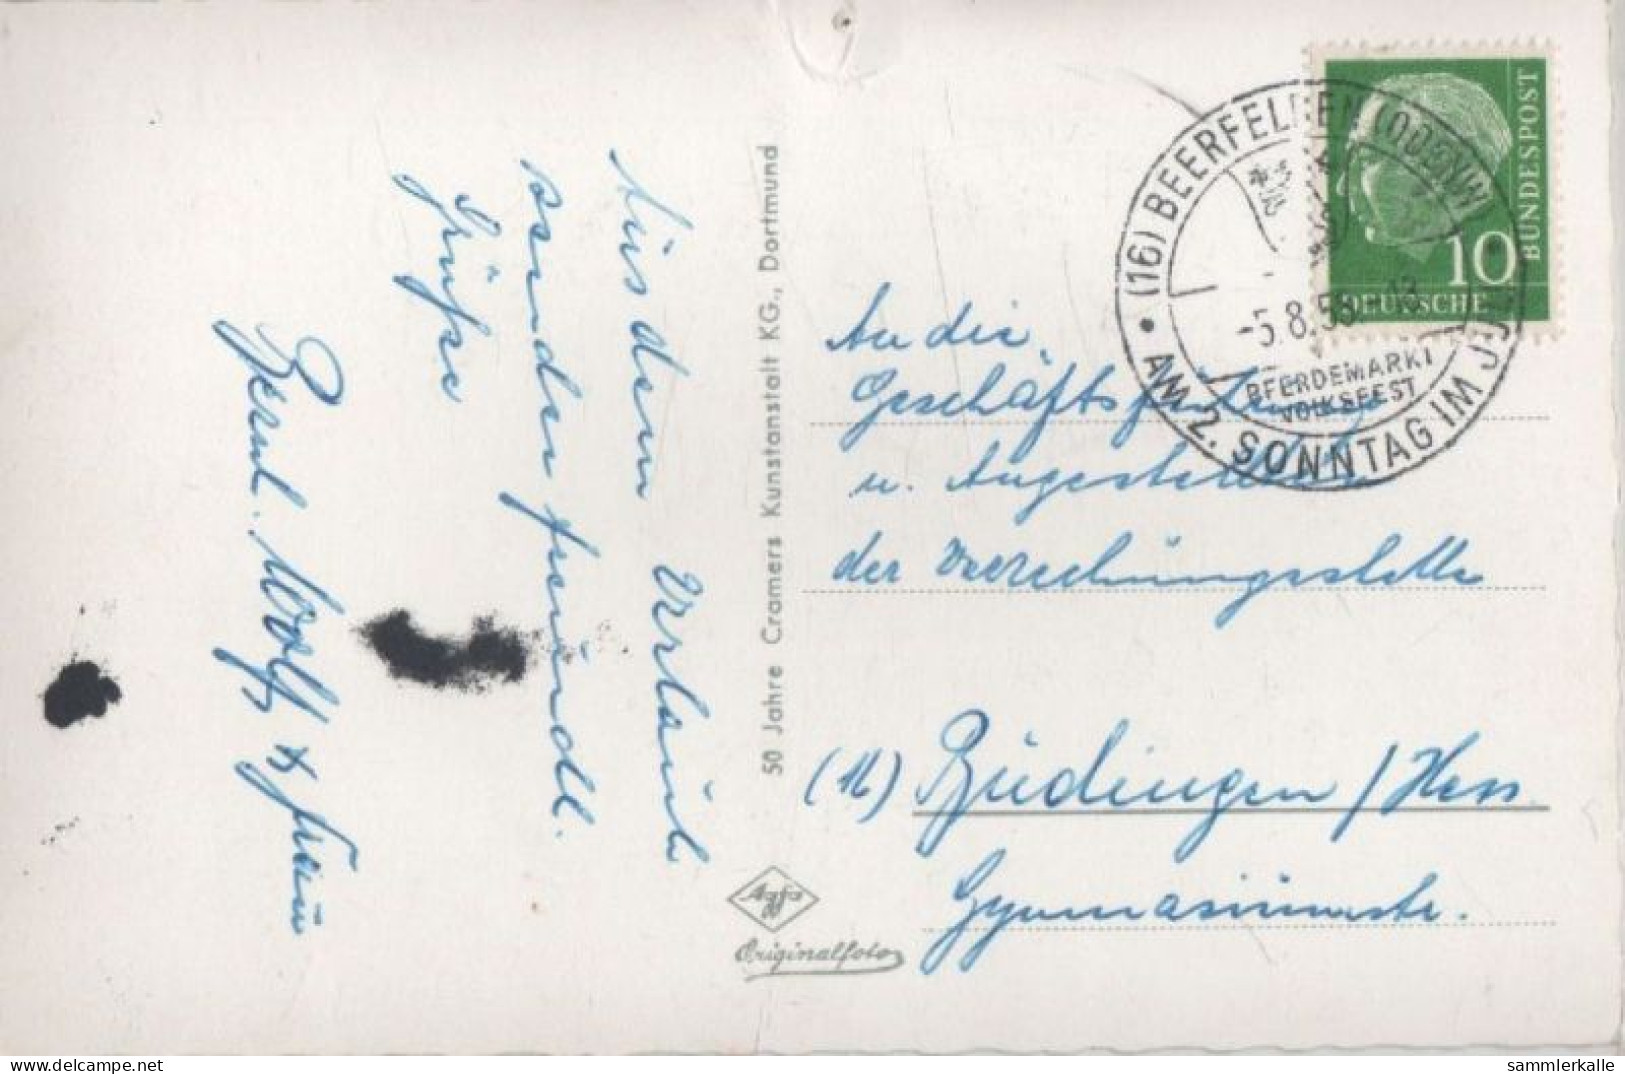 Aus dem Urlaub
senden freundl.
Grüße
Bernd. Wolff & Frau
50 Jahre Cramers Kunstanstalt KG., Dortmund
Agfa
Originalfoto
(16) BEERFELDEN (ODENW
-5.8.5
PFERDEMARKT
VOLKSFEST
AM 2. SONNTAG IM JULI
10
DEUTSCHE
BUNDESPOST
An die
Geschäftsführung
u. Angestellten
der Verrechnungsstelle
(16) Büdingen / Hess.
Gymnasiumstr.
sammlerkalle